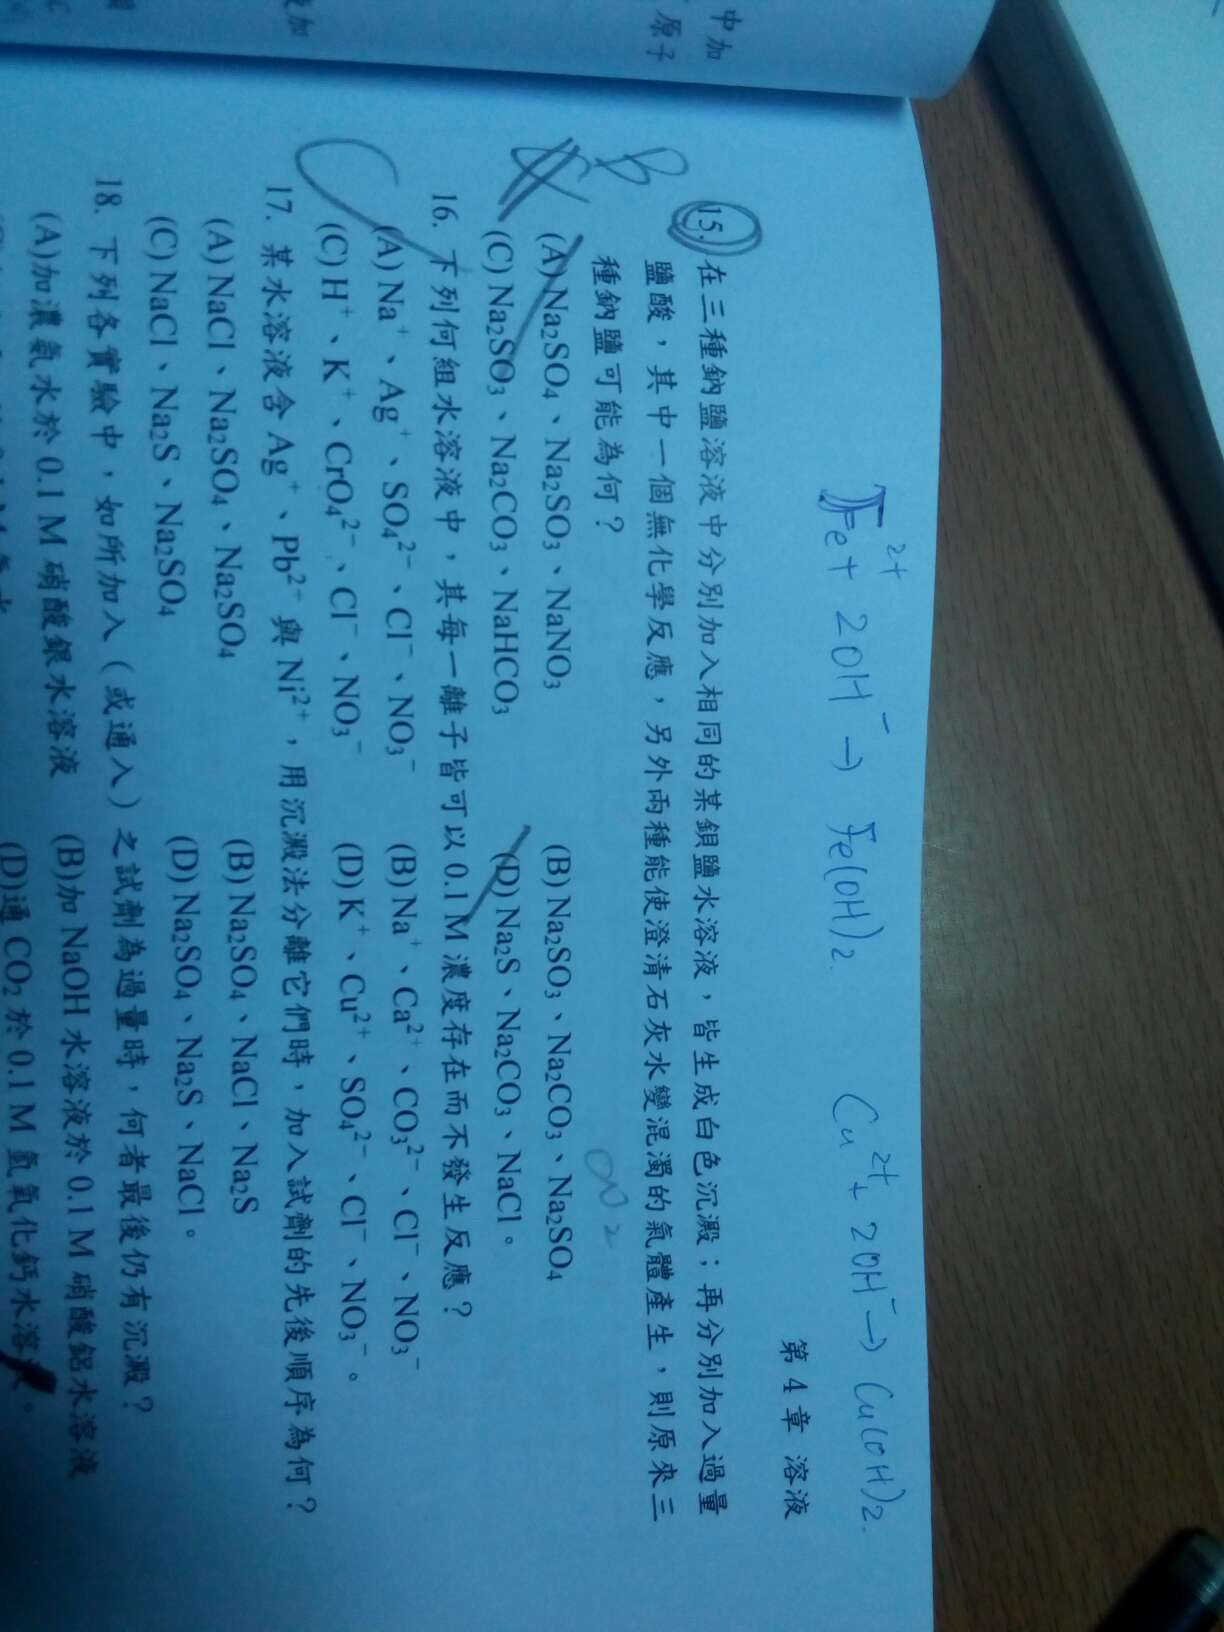 中加
原子
Fe²⁺ + 2OH⁻ → Fe(OH)₂.
Cu²⁺ + 2OH⁻ → Cu(OH)₂.
第 4 章 溶液
B
15. 在三種鈉鹽溶液中分別加入相同的某鋇鹽水溶液，皆生成白色沉澱；再分別加入過量
鹽酸，其中一個無化學反應，另外兩種能使澄清石灰水變混濁的氣體產生，則原來三
種鈉鹽可能為何？
(A) Na₂SO₄、Na₂SO₃、NaNO₃ (B) Na₂SO₃、Na₂CO₃、Na₂SO₄
(C) Na₂SO₃、Na₂CO₃、NaHCO₃ (D) Na₂S、Na₂CO₃、NaCl。
16. 下列何組水溶液中，其每一離子皆可以 0.1 M 濃度存在而不發生反應？
(A) Na⁺、Ag⁺、SO₄²⁻、Cl⁻、NO₃⁻ (B) Na⁺、Ca²⁺、CO₃²⁻、Cl⁻、NO₃⁻
(C) H⁺、K⁺、CrO₄²⁻、Cl⁻、NO₃⁻ (D) K⁺、Cu²⁺、SO₄²⁻、Cl⁻、NO₃⁻。
17. 某水溶液含 Ag⁺、Pb²⁺ 與 Ni²⁺，用沉澱法分離它們時，加入試劑的先後順序為何？
(A) NaCl、Na₂SO₄、Na₂SO₄ (B) Na₂SO₄、NaCl、Na₂S
(C) NaCl、Na₂S、Na₂SO₄ (D) Na₂SO₄、Na₂S、NaCl。
18. 下列各實驗中，如所加入（或通入）之試劑為過量時，何者最後仍有沉澱？
(A)加濃氨水於 0.1 M 硝酸銀水溶液 (B)加 NaOH 水溶液於 0.1 M 硝酸鋁水溶液
(D)通 CO₂ 於 0.1 M 氫氧化鈣水溶液。